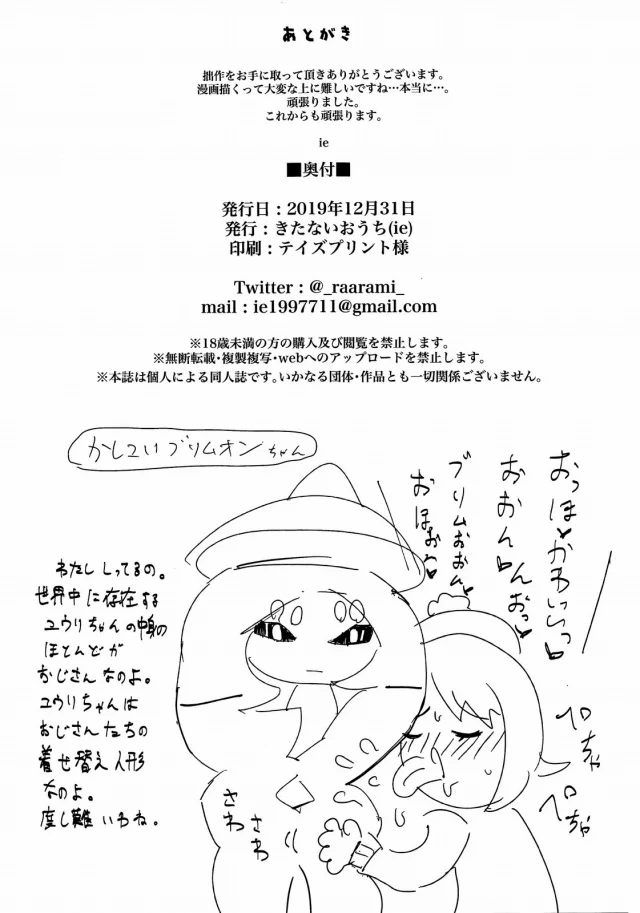 あとがき
拙作をお手に取って頂きありがとうございます。
漫画描くって大変な上に難しいですね…本当に…。
頑張りました。
これからも頑張ります。
ie
■奥付■
発行日：2019年12月31日
発行：きたないおうち(ie)
印刷：テイズプリント様
Twitter：@_raarami_
mail：ie1997711@gmail.com
※18歳未満の方の購入及び閲覧を禁止します。
※無断転載・複製複写・webへのアップロードを禁止します。
※本誌は個人による同人誌です。いかなる団体・作品とも一切関係ございません。
かしこいブリムオンちゃん
おっほ♥かわいいっ♥
おおん♥んおっ♥
ブリムおおん♥
おほおっ♥
わたししってるの。
世界中に存在する
ユウリちゃんの中身の
ほとんどが
おじさんなのよ。
ユウリちゃんは
おじさんたちの
着せ替え人形
なのよ。
度し難いわね。
さわ
さわ
ペちゃ
ペちゃ